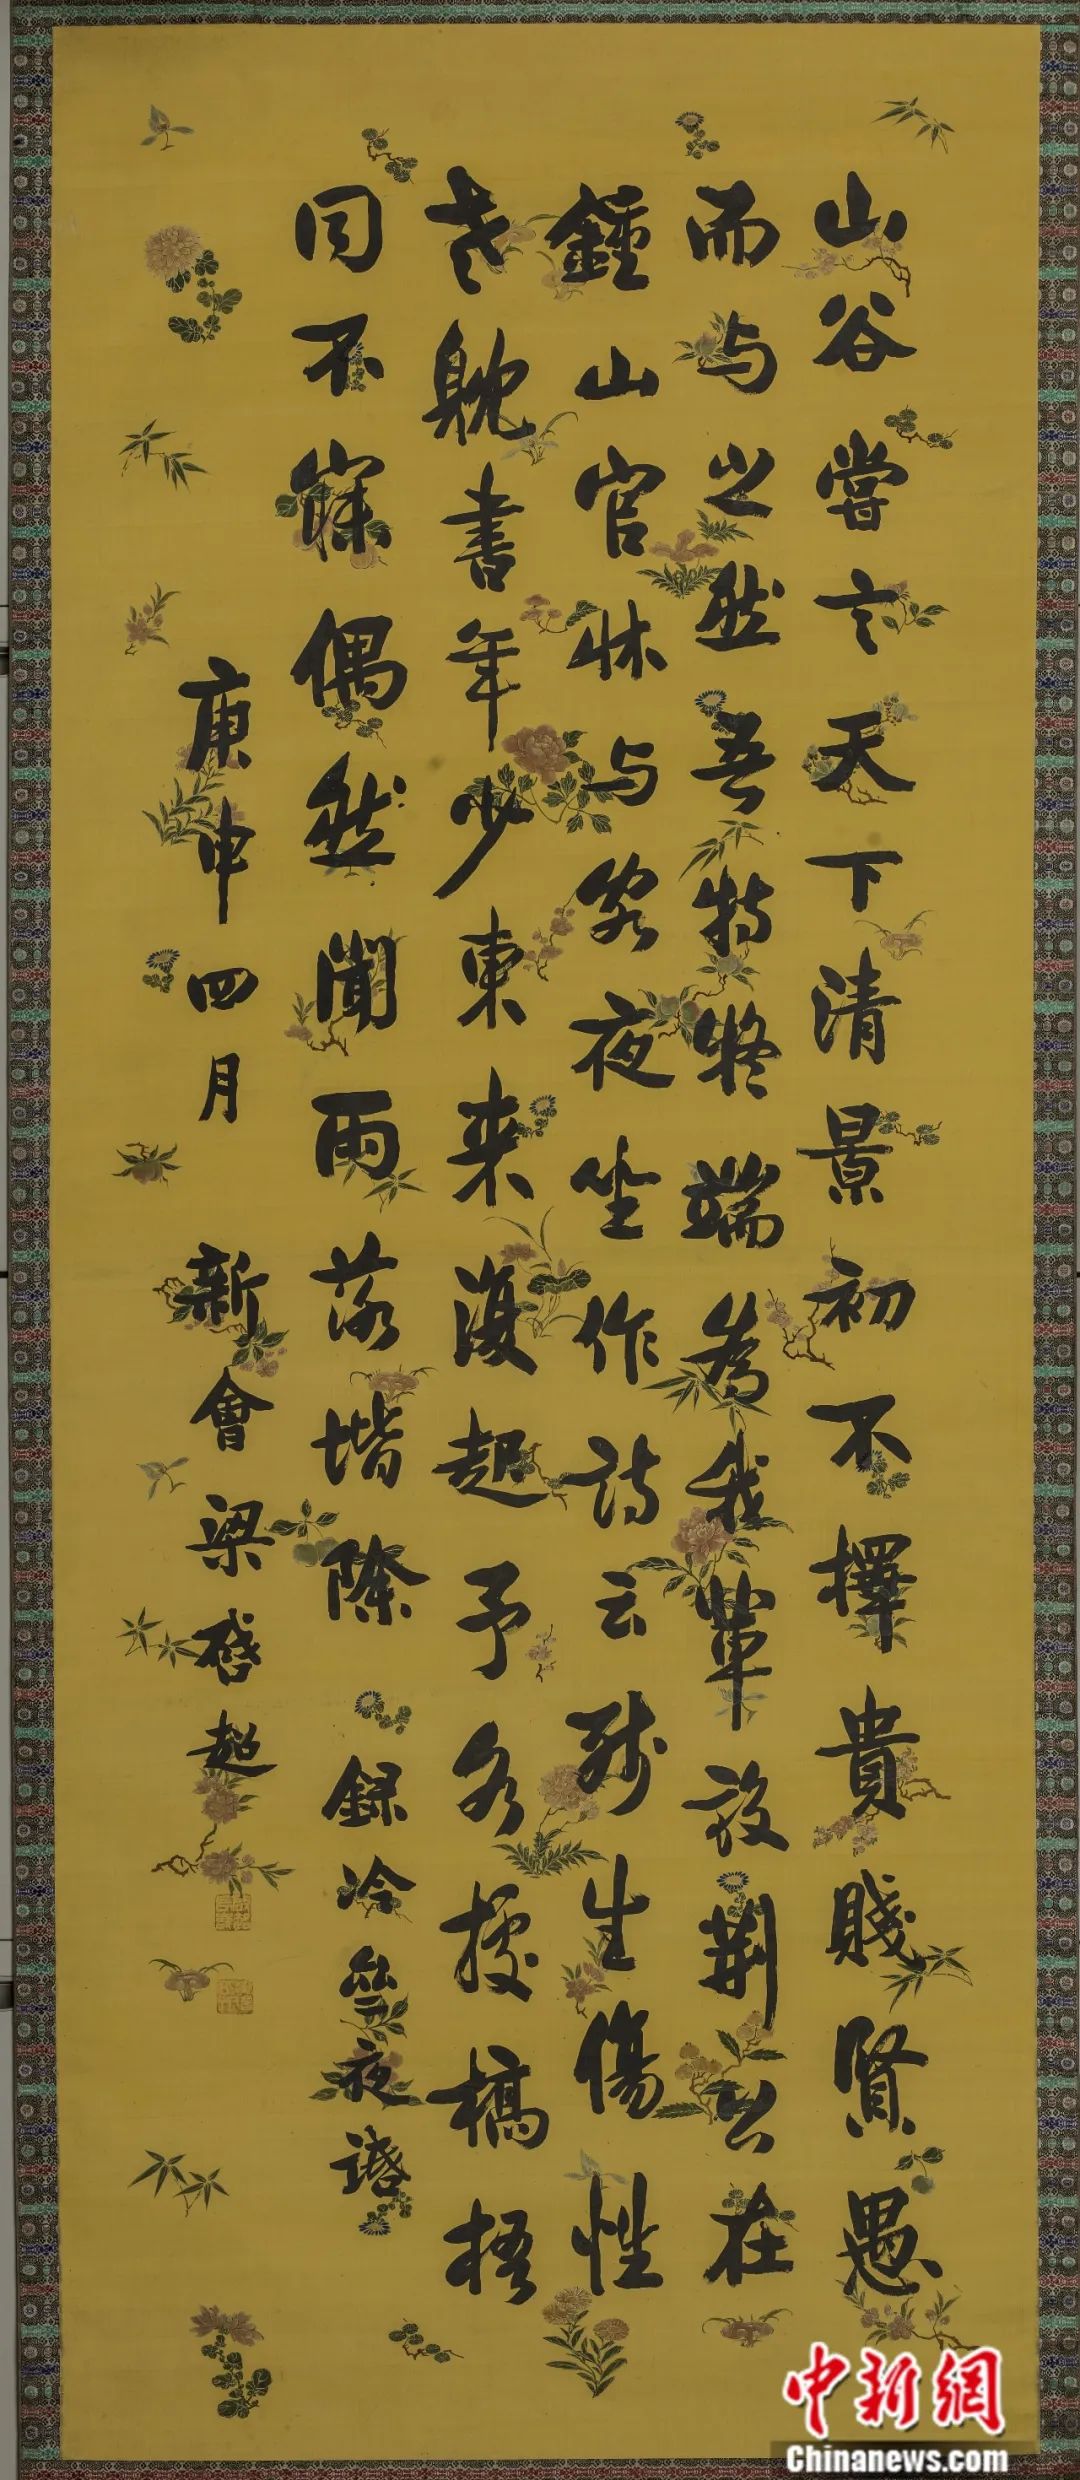 山谷嘗言天下清景初不擇貴賤賢愚
而与之然吾特疑端為我輩設荊公在
鍾山官牀与客夜坐作詩云殘生傷性
老耽書年少東来復起予各據槁梧
同不寐偶然聞雨落堦除 録冷齋夜話
庚申四月 新會梁啓超
中新網
Chinanews.com